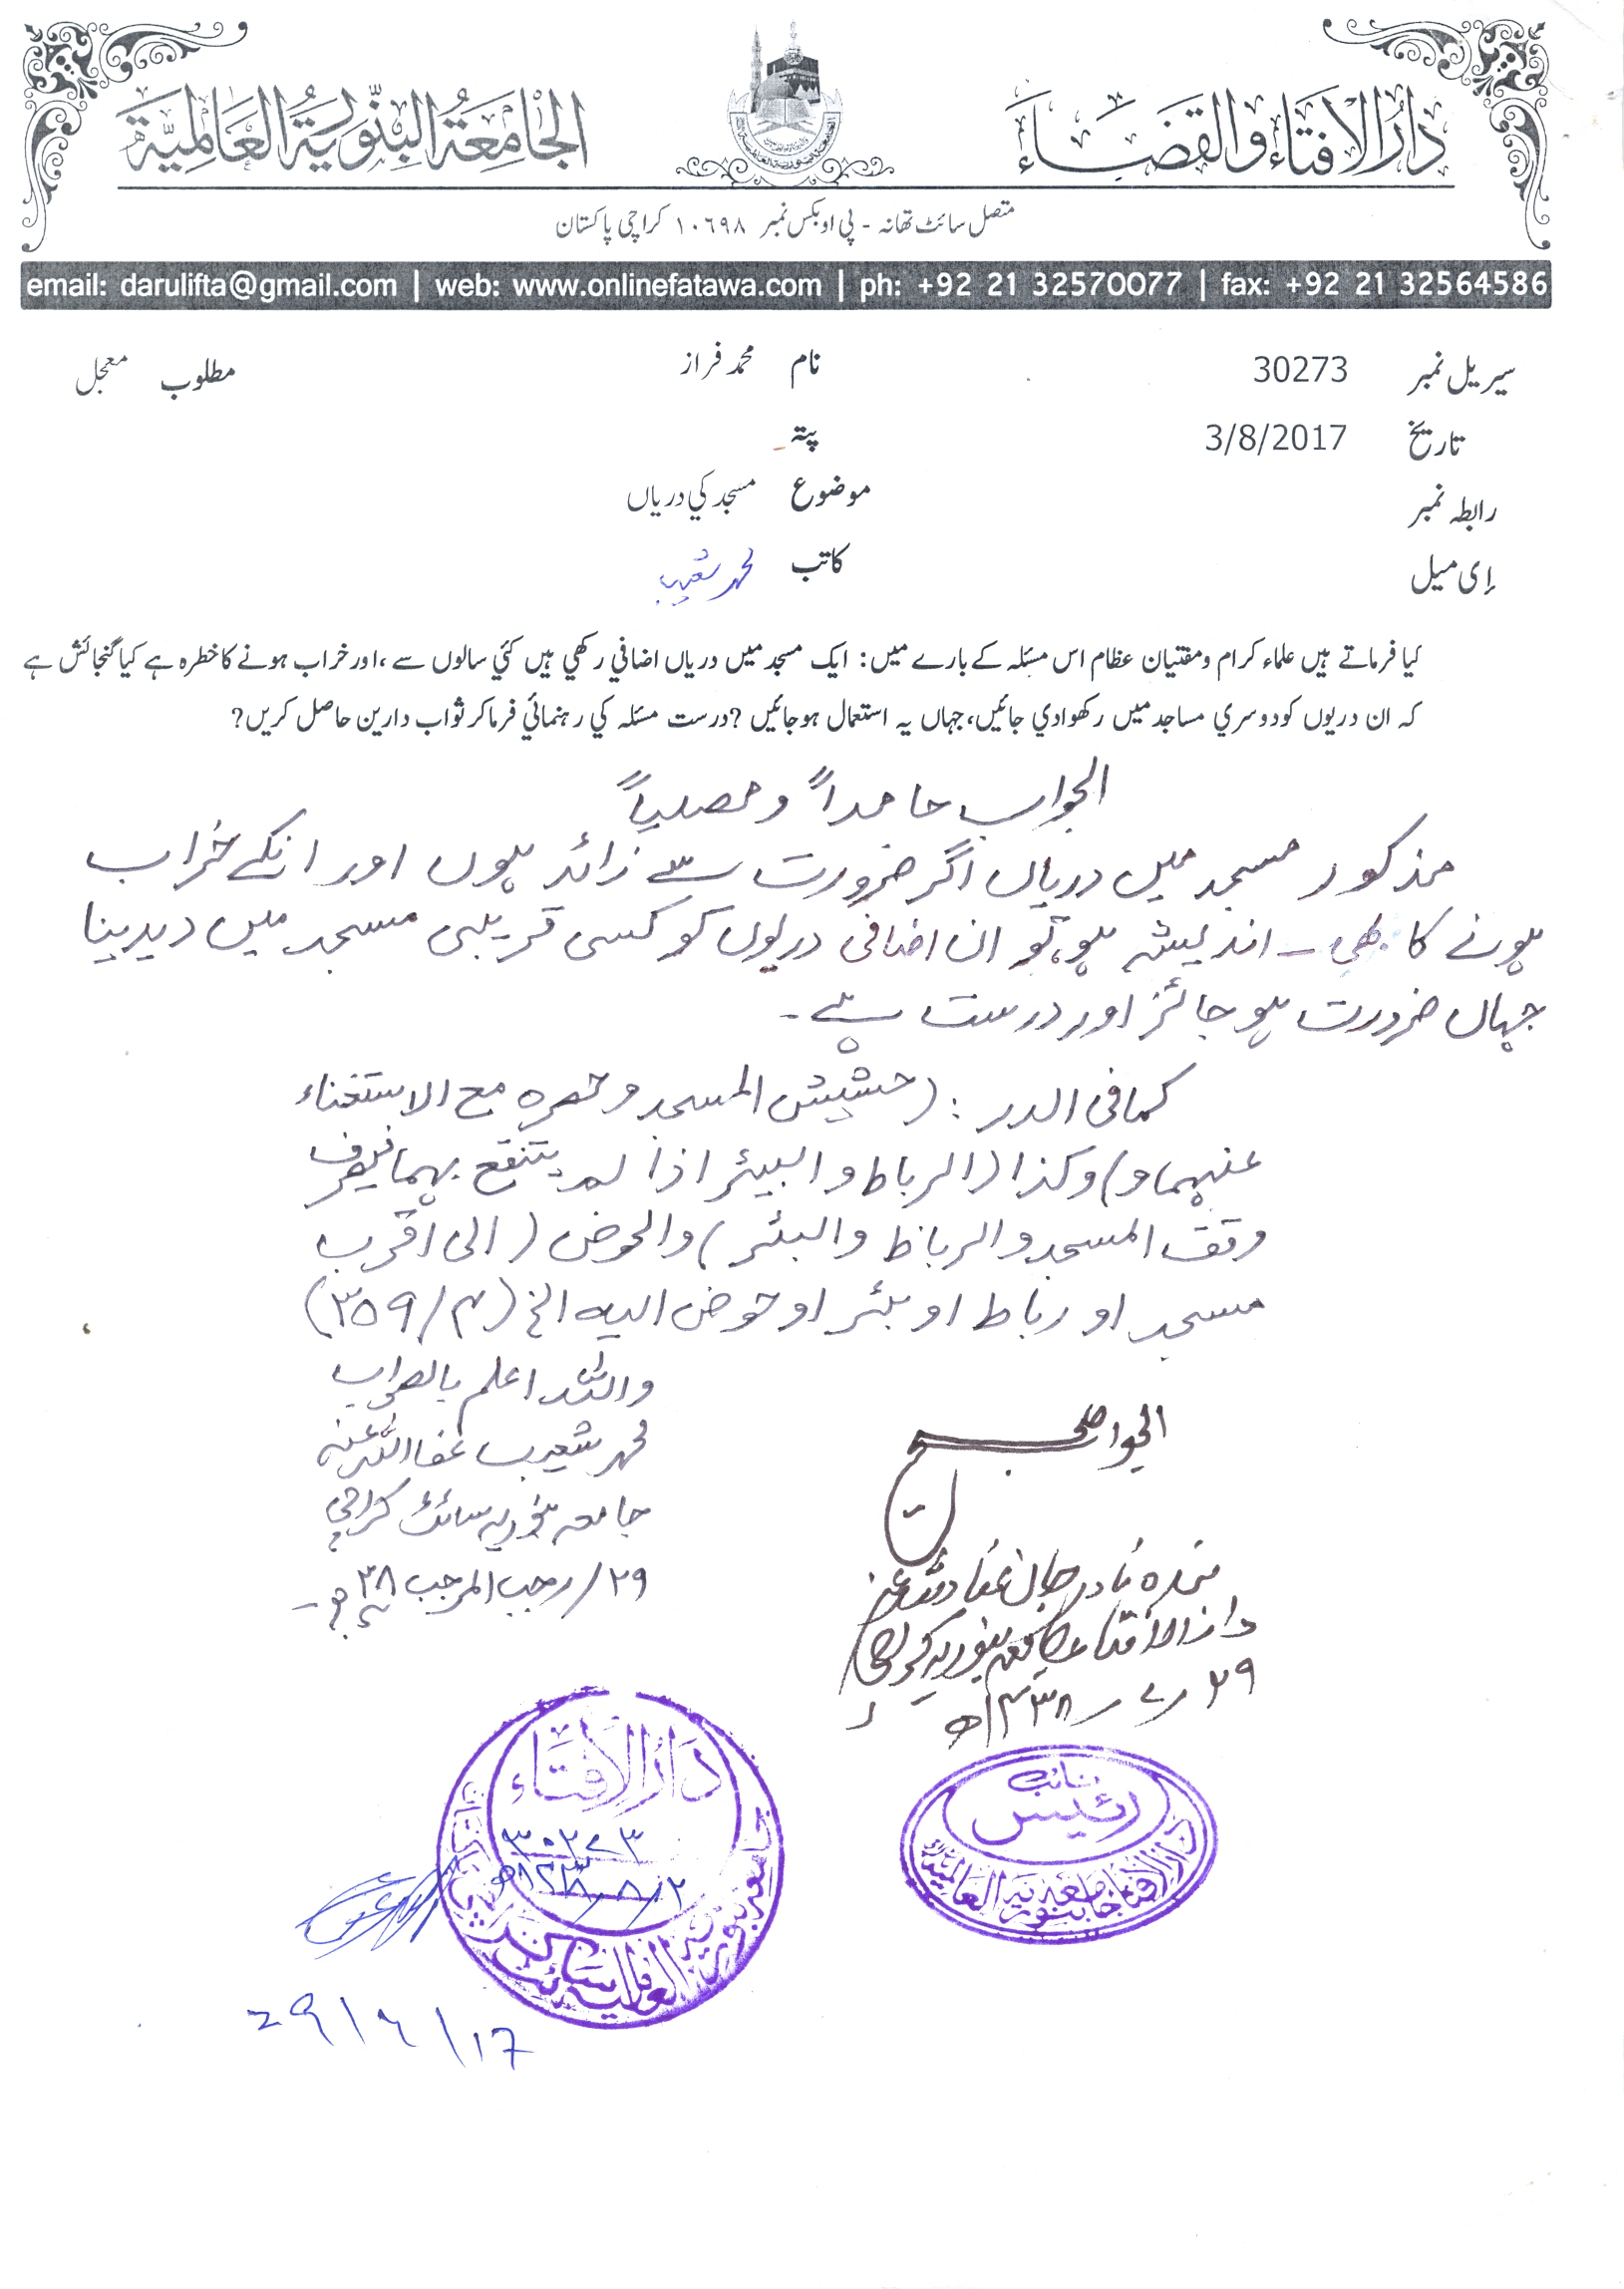 دَارُ الْاِفْتَاء وَالْقَضَاء
الْجَامِعَةُ الْبِنُّورِيَّةُ الْعَالَمِيَّة
متصل سائٹ تھانہ - پی او بکس نمبر ١٠٦٩٨ کراچی پاکستان
email: darulifta@gmail.com | web: www.onlinefatawa.com | ph: +92 21 32570077 | fax: +92 21 32564586
سیریل نمبر 30273 نام محمد فراز مطلوب معجل
تاریخ 3/8/2017 پتہ
رابطہ نمبر موضوع مسجد کي دریاں
اِی میل کاتب محمد شعیب
کیا فرماتے ہیں علماء کرام ومفتیان عظام اس مسئلہ کے بارے میں: ایک مسجد میں دریاں اضافي رکھي ہیں کئي سالوں سے ،اور خراب ہونے کا خطرہ ہے کیا گنجائش ہے
کہ ان دریوں کو دوسري مساجد میں رکھوادي جائیں، جہاں یہ استعمال ہوجائیں ؟درست مسئلہ کي رہنمائي فرماکر ثواب دارین حاصل کریں؟
الجواب حامداً ومصلیاً
مذکور مسجد میں دریاں اگر ضرورت سے زائد ہوں اور انکے خراب
ہونے کا بھی اندیشہ ہو، تو ان اضافی دریوں کو کسی قریبی مسجد میں دیدینا
جہاں ضرورت ہو جائز اور درست ہے۔
کما فی الدر : (حشیش المسجد وحصرہ مع الاستغناء
عنہما و) وکذا (الرباط والبیئر اذا لم ینتفع بہما فیصرف
وقف المسجد والرباط والبئر) والحوض (الی اقرب
مسجد او رباط او بئر او حوض الیہ الخ (۴/۳۵۹)
واللہ اعلم بالصواب
محمد شعیب عفا اللہ عنہ
جامعہ بنوریہ سائٹ کراچی
۲۹/رجب المرجب ۳۸ھ۔
الجواب صحیح
بندہ نادر جان عفا اللہ عنہ
دار الافتاء جامعہ بنوریہ کراچی
۲۹ ر ۷ ر ۱۴۳۸ھ
نائب
رئیس
دار الافتا جامعہ بنوریہ العالمیہ
دَارُ الْاِفْتَاء
۳۰۲۷۳
۲/۸/۱۴۳۸ھ
جامعہ بنوریہ العالمیہ سائٹ
29/4/17